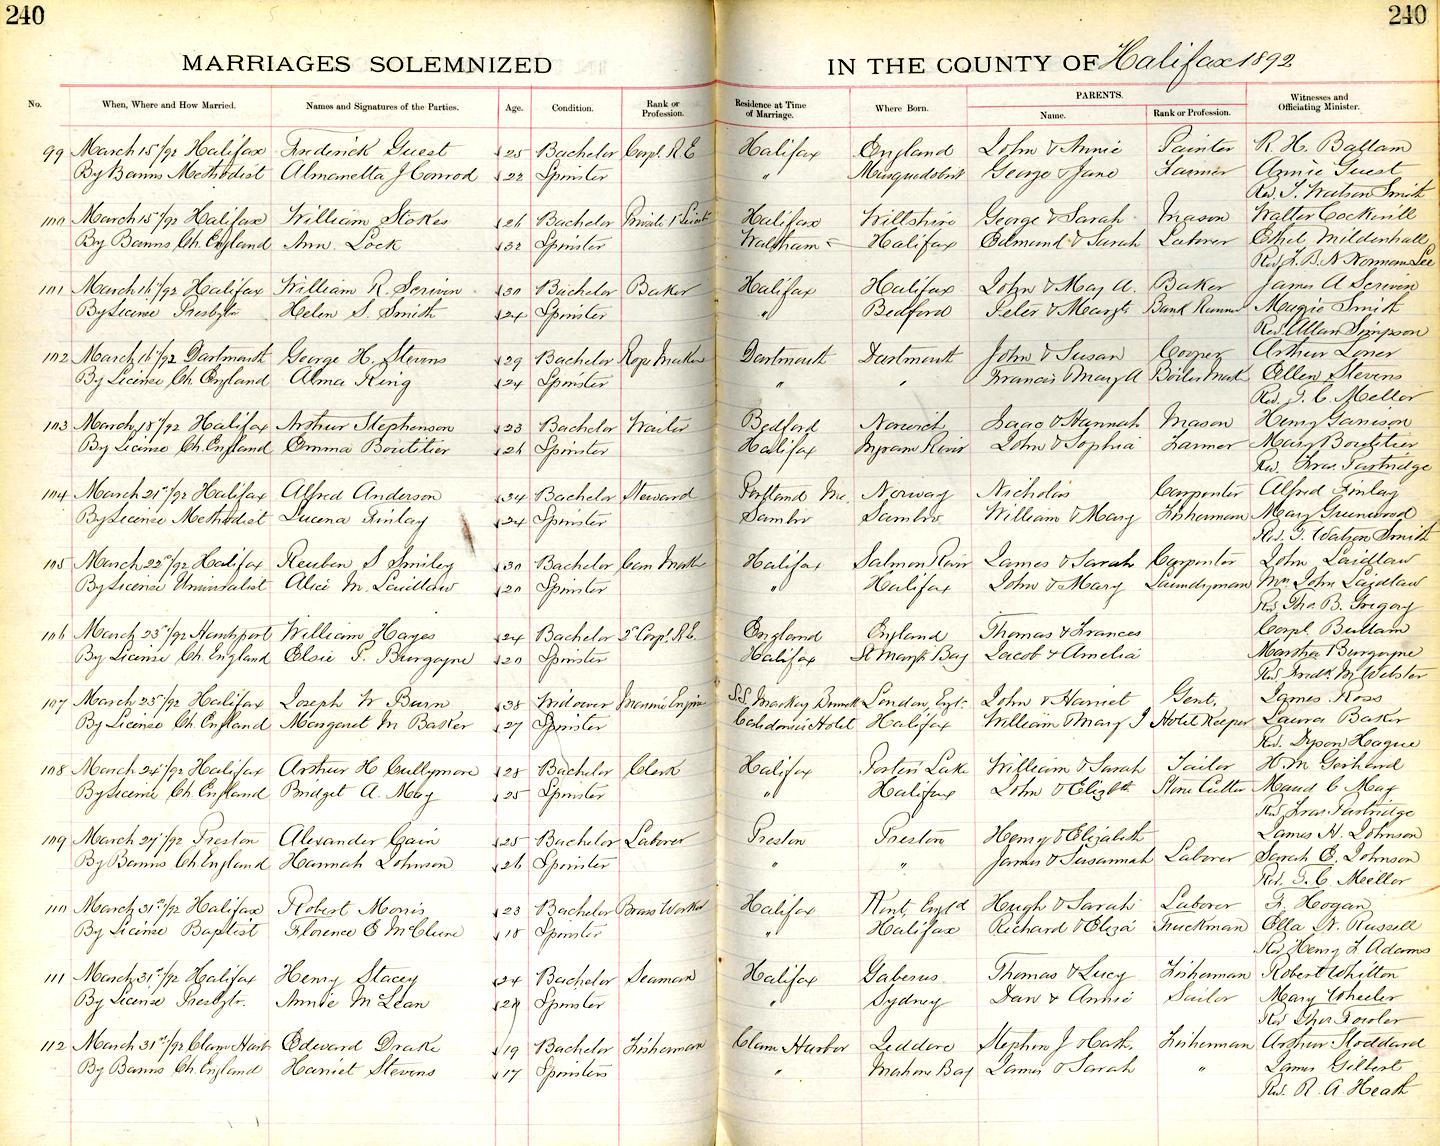 240 240
MARRIAGES SOLEMNIZED IN THE COUNTY OF Halifax 1892
PARENTS.
No. When, Where and How Married. Names and Signatures of the Parties. Age. Condition. Rank or Profession. Residence at Time of Marriage. Where Born. Name. Rank or Profession. Witnesses and Officiating Minister.
99 March 15/92 Halifax Frederick Guest 25 Bachelor Corpl. R.E Halifax England John & Annie Painter R. H. Ballam
By Banns Methodist Almanetta J Conrod 22 Spinster " Musquodoboit George & Jane Farmer Annie Guest
Rev. T. Watson Smith
100 March 15/92 Halifax William Stokes 26 Bachelor Private Halifax Willshire George & Sarah Mason Walter Cockerill
By Banns Ch. England Ann Lock 32 Spinster Halifax Edmund & Sarah Laborer Ethel Mildenhall
Rev. Norman Lee
101 March 16/92 Halifax William R. Scriven 30 Bachelor Baker Halifax Halifax John & May A. Baker James A Scriven
By License Presbytn Helen S. Smith 24 Spinster " Bedford Peter & Margt. Bank Runner Maggie Smith
Rev. Allan Simpson
102 March 16/92 Dartmouth George H. Stevens 29 Bachelor Rope Maker Dartmouth Dartmouth John & Susan Cooper Arthur
By License Ch. England Alma King 24 Spinster " " Francis Mary A Boiler Mak Ellen Stevens
Rev. T. C. Mellor
103 March 18/92 Halifax Arthur Stephenson 23 Bachelor Waiter Bedford Norwich Isaac & Hannah Mason Henry Garrison
By License Ch. England Emma Boutilier 26 Spinster Halifax Ingram River John & Sophia Farmer Mary Boutilier
Rev. Fras. Partridge
104 March 21st/92 Halifax Alfred Anderson 34 Bachelor Steward Portland Me. Norway Nicholas Carpenter Alfred Finlay
By License Methodist Lucena Finlay 24 Spinster Sambro Sambro William & Mary Fisherman Mary Greenwood
Rev. T. Watson Smith
105 March 22nd/92 Halifax Reuben S Smiley 30 Bachelor Can Maker Halifax Salmon River James & Sarah Carpenter John Laidlaw
By License Universalist Alice M. Laidlaw 20 Spinster " Halifax John & Mary Laundryman Mrs John Laidlaw
Rev Tho. B. Gregory
106 March 23/92 Hantsport William Hayes 24 Bachelor 2d Corpl. R.E. England England Thomas & Frances Corpl. Bullam
By License Ch. England Elsie P. Burgoyne 20 Spinster Halifax St Margts Bay Jacob & Amelia Martha Burgoyne
Rev. Fredk. M. Webster
107 March 23/92 Halifax Joseph W Burn 38 Widower Marine Engine S.S. Mackay Bennett London, Engl. John & Harriet Gent. James Ross
By License Ch. England Margaret M Baker 27 Spinster Caledonia Hotel Halifax William & Mary J Hotel Keeper Laura Baker
Rev. Dyson Hague
108 March 24/92 Halifax Arthur H Cullymore 28 Bachelor Clerk Halifax Porters Lake William & Sarah Tailor W. M Gerhard
By License Ch. England Bridget A. May 25 Spinster " Halifax John & Elizbth Stone Cutter Maud C May
Rev Fras. Partridge
109 March 27/92 Preston Alexander Cain 25 Bachelor Laborer Preston Preston Henry & Elizabeth James H. Johnson
By Banns Ch. England Hannah Johnson 26 Spinster " " James & Susannah Laborer Sarah E. Johnson
Rev. T. C. Mellor
110 March 31st/92 Halifax Robert Morris 23 Bachelor Brass Worker Halifax Kent, Engld Hugh & Sarah Laborer F. Hogan
By License Baptist Florence E McClure 18 Spinster " Halifax Richard & Eliza Truckman Ella W. Russell
Rev Henry F Adams
111 March 31st/92 Halifax Henry Stacey 24 Bachelor Seaman Halifax Gabarus Thomas & Lucy Fisherman Robert Whitton
By License Presbytr. Annie McLean Spinster " Sydney Dan & Annie Sailor Mary Wheeler
Rev Thos. Fowler
112 March 31st/92 Clam Harb Edward Drake 19 Bachelor Fisherman Clam Harbor Jeddore Stephen J & Cath. Fisherman Arthur Stoddard
By Banns Ch. England Harriet Stevens 17 Spinsters " Mahone Bay James & Sarah " James Gilbert
Rev. R. A Heath